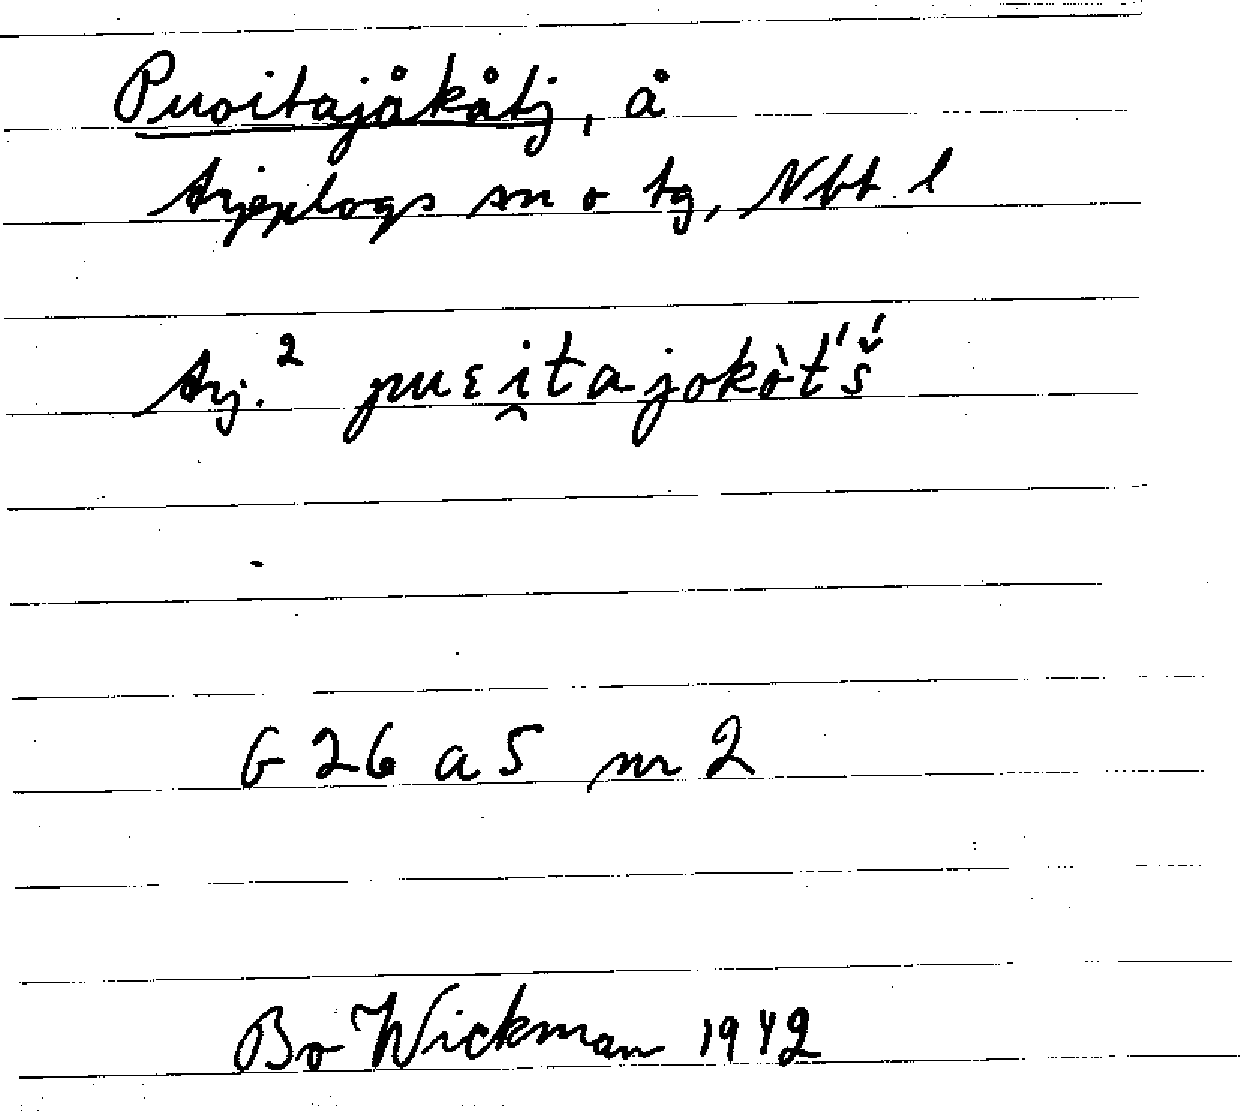 Puoitajåkåtj, å
Arjeplogs sn o tg, Nbt l
Arj.² puɛi̯tajokòt́š́
G 26 a 5 nr 2
Bo Wickman 1942